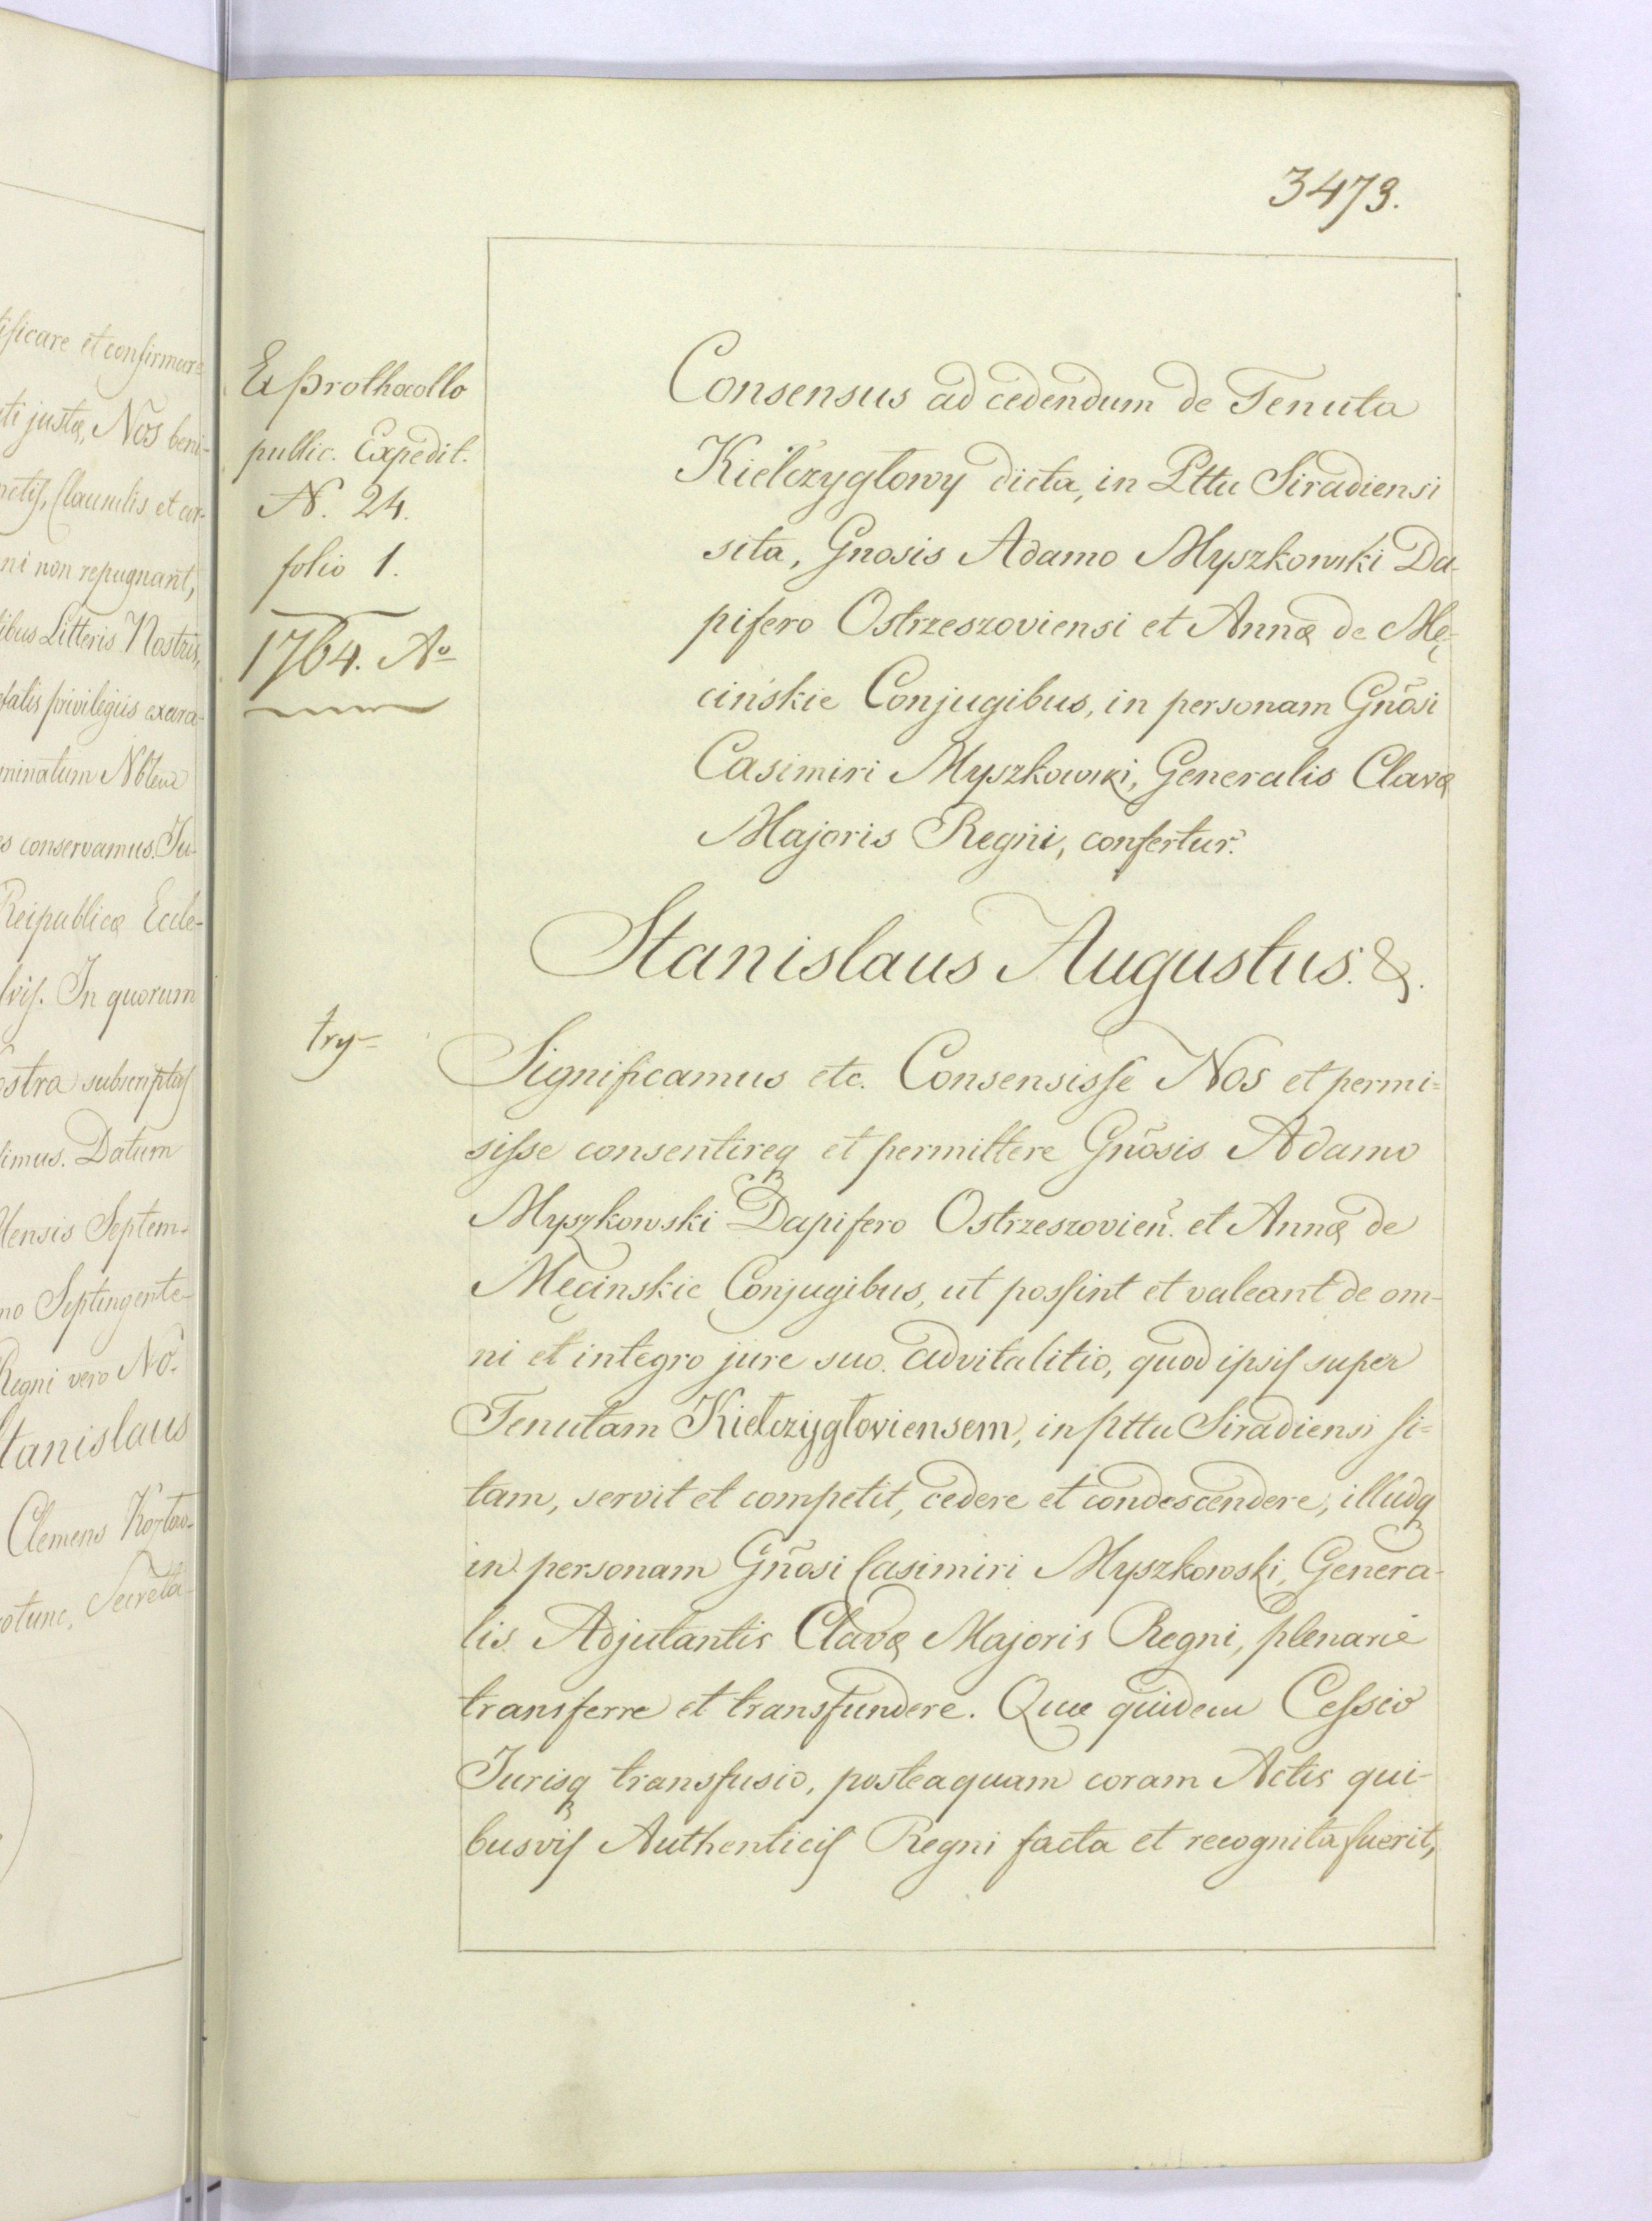 ificare et confirmare
ti justæ, Nos beni-
netis, Clausulis et ar-
ni non repugnant,
ibus Litteris Nostris,
talis privilegiis exara-
minatum Nblem
s conservamus. Ju-
Reipublicæ Eccle-
lvis. In quorum
ostra subscriptas
simus. Datum
Mensis Septem-
no Septingente-
Regni vero No-
Stanislaus
Clemens Kozłow-
otunc, Secreta-
3473.
Ex prothocollo
public. Expedit.
N. 24.
folio 1.
1764. Aº
Consensus ad cedendum de Tenuta
Kiełczygłowy dicta, in Pttu Siradiensi
sita, Gnosis Adamo Myszkowski Da-
pifero Ostrzeszoviensi et Annæ de Mę-
cińskie Conjugibus, in personam Gnõsi
Casimiri Myszkowski, Generalis Clavæ
Majoris Regni, confertur.
Stanislaus Augustus. &.
try=
Significamus etc. Consensisse Nos et permi=
sisse consentireq et permittere Gnõsis Adamo
Myszkowski Dapifero Ostrzeszovien̄. et Annæ de
Męcinskie Conjugibus, ut possint et valeant de om-
ni et integro jure suo advitalitio, quod ipsis super
Tenutam Kiełczygłoviensem, in pttu Siradiensi si=
tam, servit et competit, cedere et condescendere, illudq
in personam Gnõsi Casimiri Myszkowski, Genera-
lis Adjutantis Clavæ Majoris Regni, plenarie
transferre et transfundere. Quæ quidem Cessio
Jurisq transfusio, posteaquam coram Actis qui-
busvis Authenticis Regni facta et recognita fuerit,